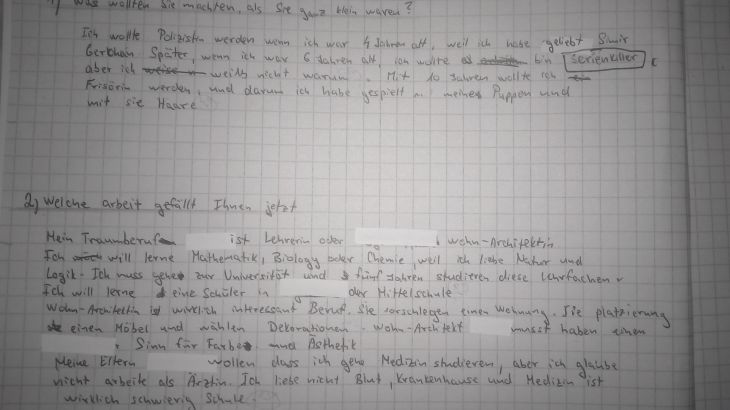 1) Was wollten Sie machten, als Sie ganz klein waren?
Ich wollte Polizistin werden wenn ich war 4 Jahren alt, weil ich habe geliebt
Später, wenn ich war 6 Jahren alt, ich wollte bin Serienkiller
aber ich weiß nicht warum. Mit 10 Jahren wollte ich
Frisörin werden, und darum ich habe gespielt meines Puppen und
mit sie Haare
2) Welche arbeit gefällt Ihnen jetzt
Mein Traumberuf ist Lehrerin oder Wohn-Architektin
Ich will lerne Mathematik, Biology oder Chemie, weil ich liebe Natur und
Logik. Ich muss gehe zur Universität und fünf Jahren studieren diese Lehrfachen.
Ich will lerne eine Schüler in der Mittelschule
Wohn-Architektin ist wirklich interessant Beruf. Sie vorschlegen einen Wohnung. Sie platzierung
einen Möbel und wählen Dekorationen. Wohn-Architekt musst haben einen
Sinn für Farbe und Ästhetik
Meine Eltern wollen dass ich gehe Medizin studieren, aber ich glaube
nicht arbeite als Ärztin. Ich liebe nicht Blut, Krankenhause und Medizin ist
wirklich schwierig Schule.